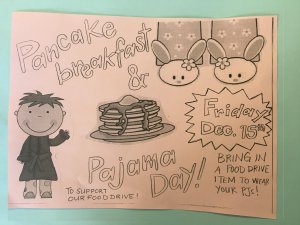 Pancake
breakfast
&
Pajama
Day!
Friday
Dec. 15th
TO SUPPORT
OUR FOOD DRIVE!
BRING IN
A FOOD DRIVE
ITEM TO WEAR
YOUR PJs!